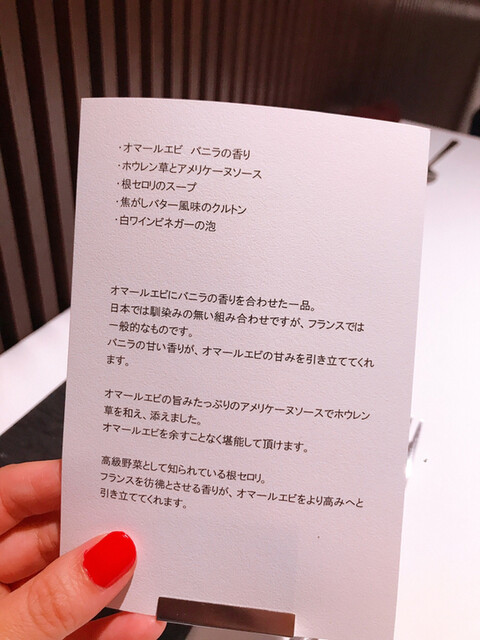 ・オマールエビ　バニラの香り
・ホウレン草とアメリケーヌソース
・根セロリのスープ
・焦がしバター風味のクルトン
・白ワインビネガーの泡
オマールエビにバニラの香りを合わせた一品。
日本では馴染みの無い組み合わせですが、フランスでは
一般的なものです。
バニラの甘い香りが、オマールエビの甘みを引き立ててくれ
ます。
オマールエビの旨みたっぷりのアメリケーヌソースでホウレン
草を和え、添えました。
オマールエビを余すことなく堪能して頂けます。
高級野菜として知られている根セロリ。
フランスを彷彿とさせる香りが、オマールエビをより高みへと
引き立ててくれます。